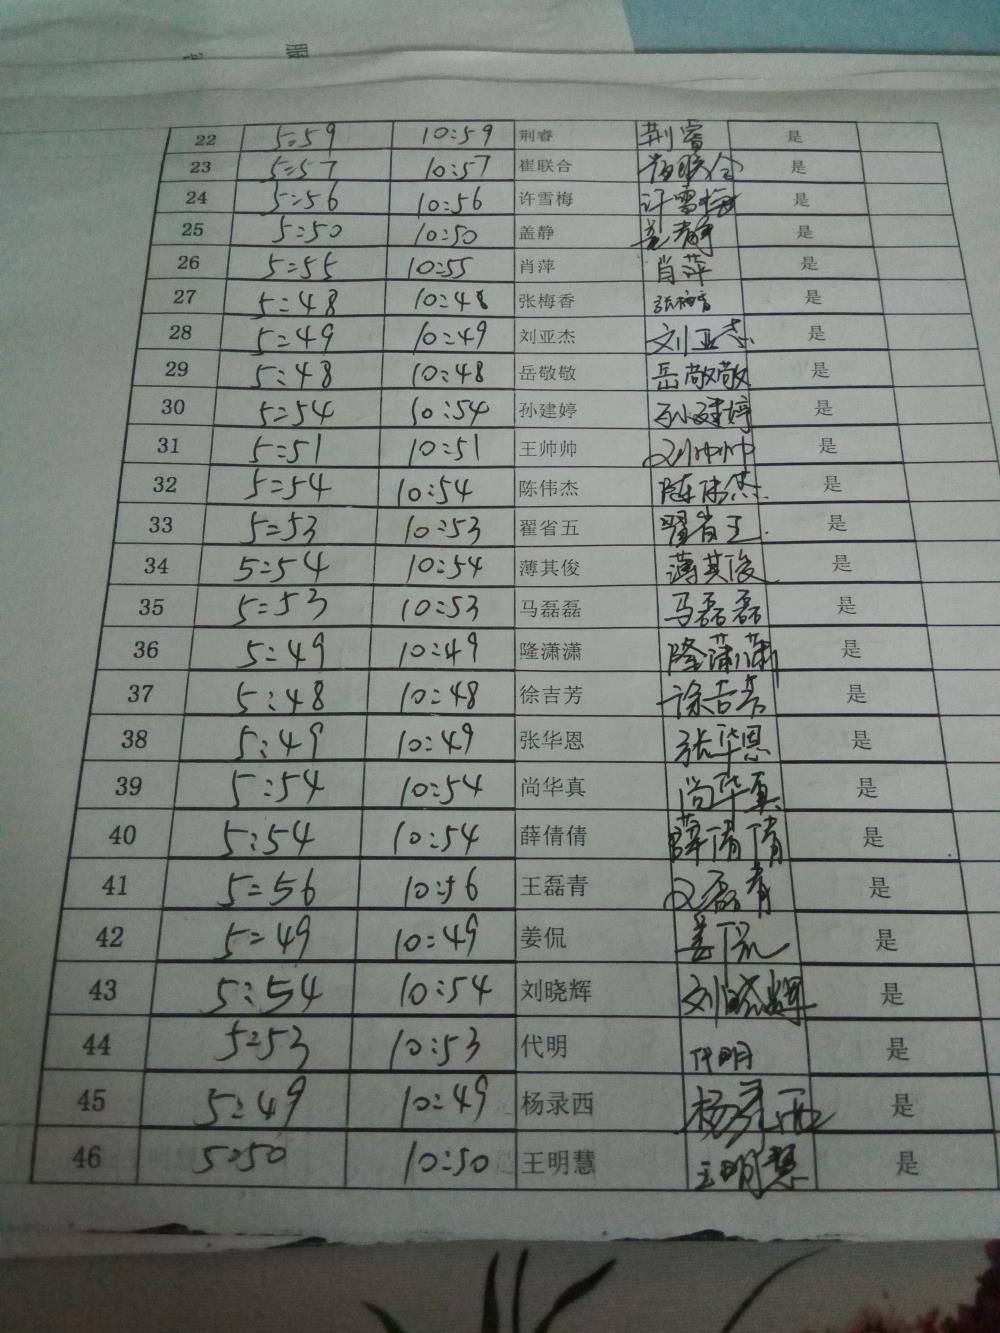 22 5:59 10:59 荆睿 荆睿 是
23 5:57 10:57 崔联合 崔联合 是
24 5:56 10:56 许雪梅 许雪梅 是
25 5:50 10:50 盖静 盖静 是
26 5:55 10:55 肖萍 肖萍 是
27 5:48 10:48 张梅香 张梅香 是
28 5:49 10:49 刘亚杰 刘亚杰 是
29 5:48 10:48 岳敬敬 岳敬敬 是
30 5:54 10:54 孙建婷 孙建婷 是
31 5:51 10:51 王帅帅 王帅帅 是
32 5:54 10:54 陈伟杰 陈伟杰 是
33 5:53 10:53 翟省五 翟省五 是
34 5:54 10:54 薄其俊 薄其俊 是
35 5:53 10:53 马磊磊 马磊磊 是
36 5:49 10:49 隆潇潇 隆潇潇 是
37 5:48 10:48 徐吉芳 徐吉芳 是
38 5:49 10:49 张华恩 张华恩 是
39 5:54 10:54 尚华真 尚华真 是
40 5:54 10:54 薛倩倩 薛倩倩 是
41 5:56 10:56 王磊青 王磊青 是
42 5:49 10:49 姜侃 姜侃 是
43 5:54 10:54 刘晓辉 刘晓辉 是
44 5:53 10:53 代明 代明 是
45 5:49 10:49 杨录西 杨录西 是
46 5:50 10:50 王明慧 王明慧 是